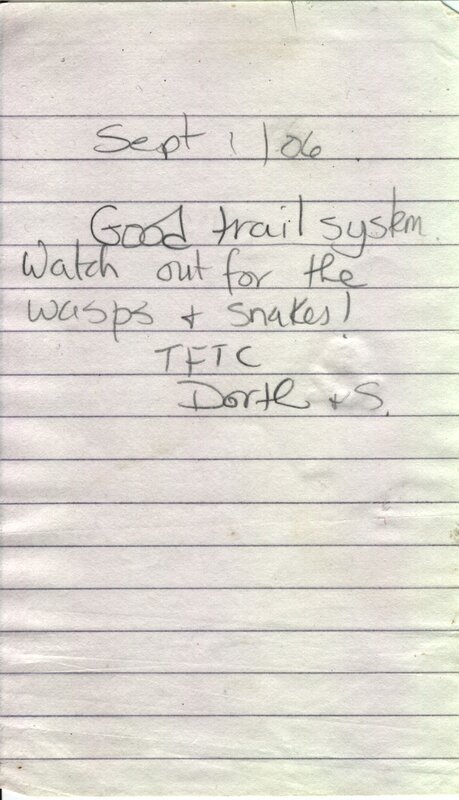 Sept 1/06
Good trail system.
Watch out for the
wasps + snakes!
TFTC
Dorth + S.